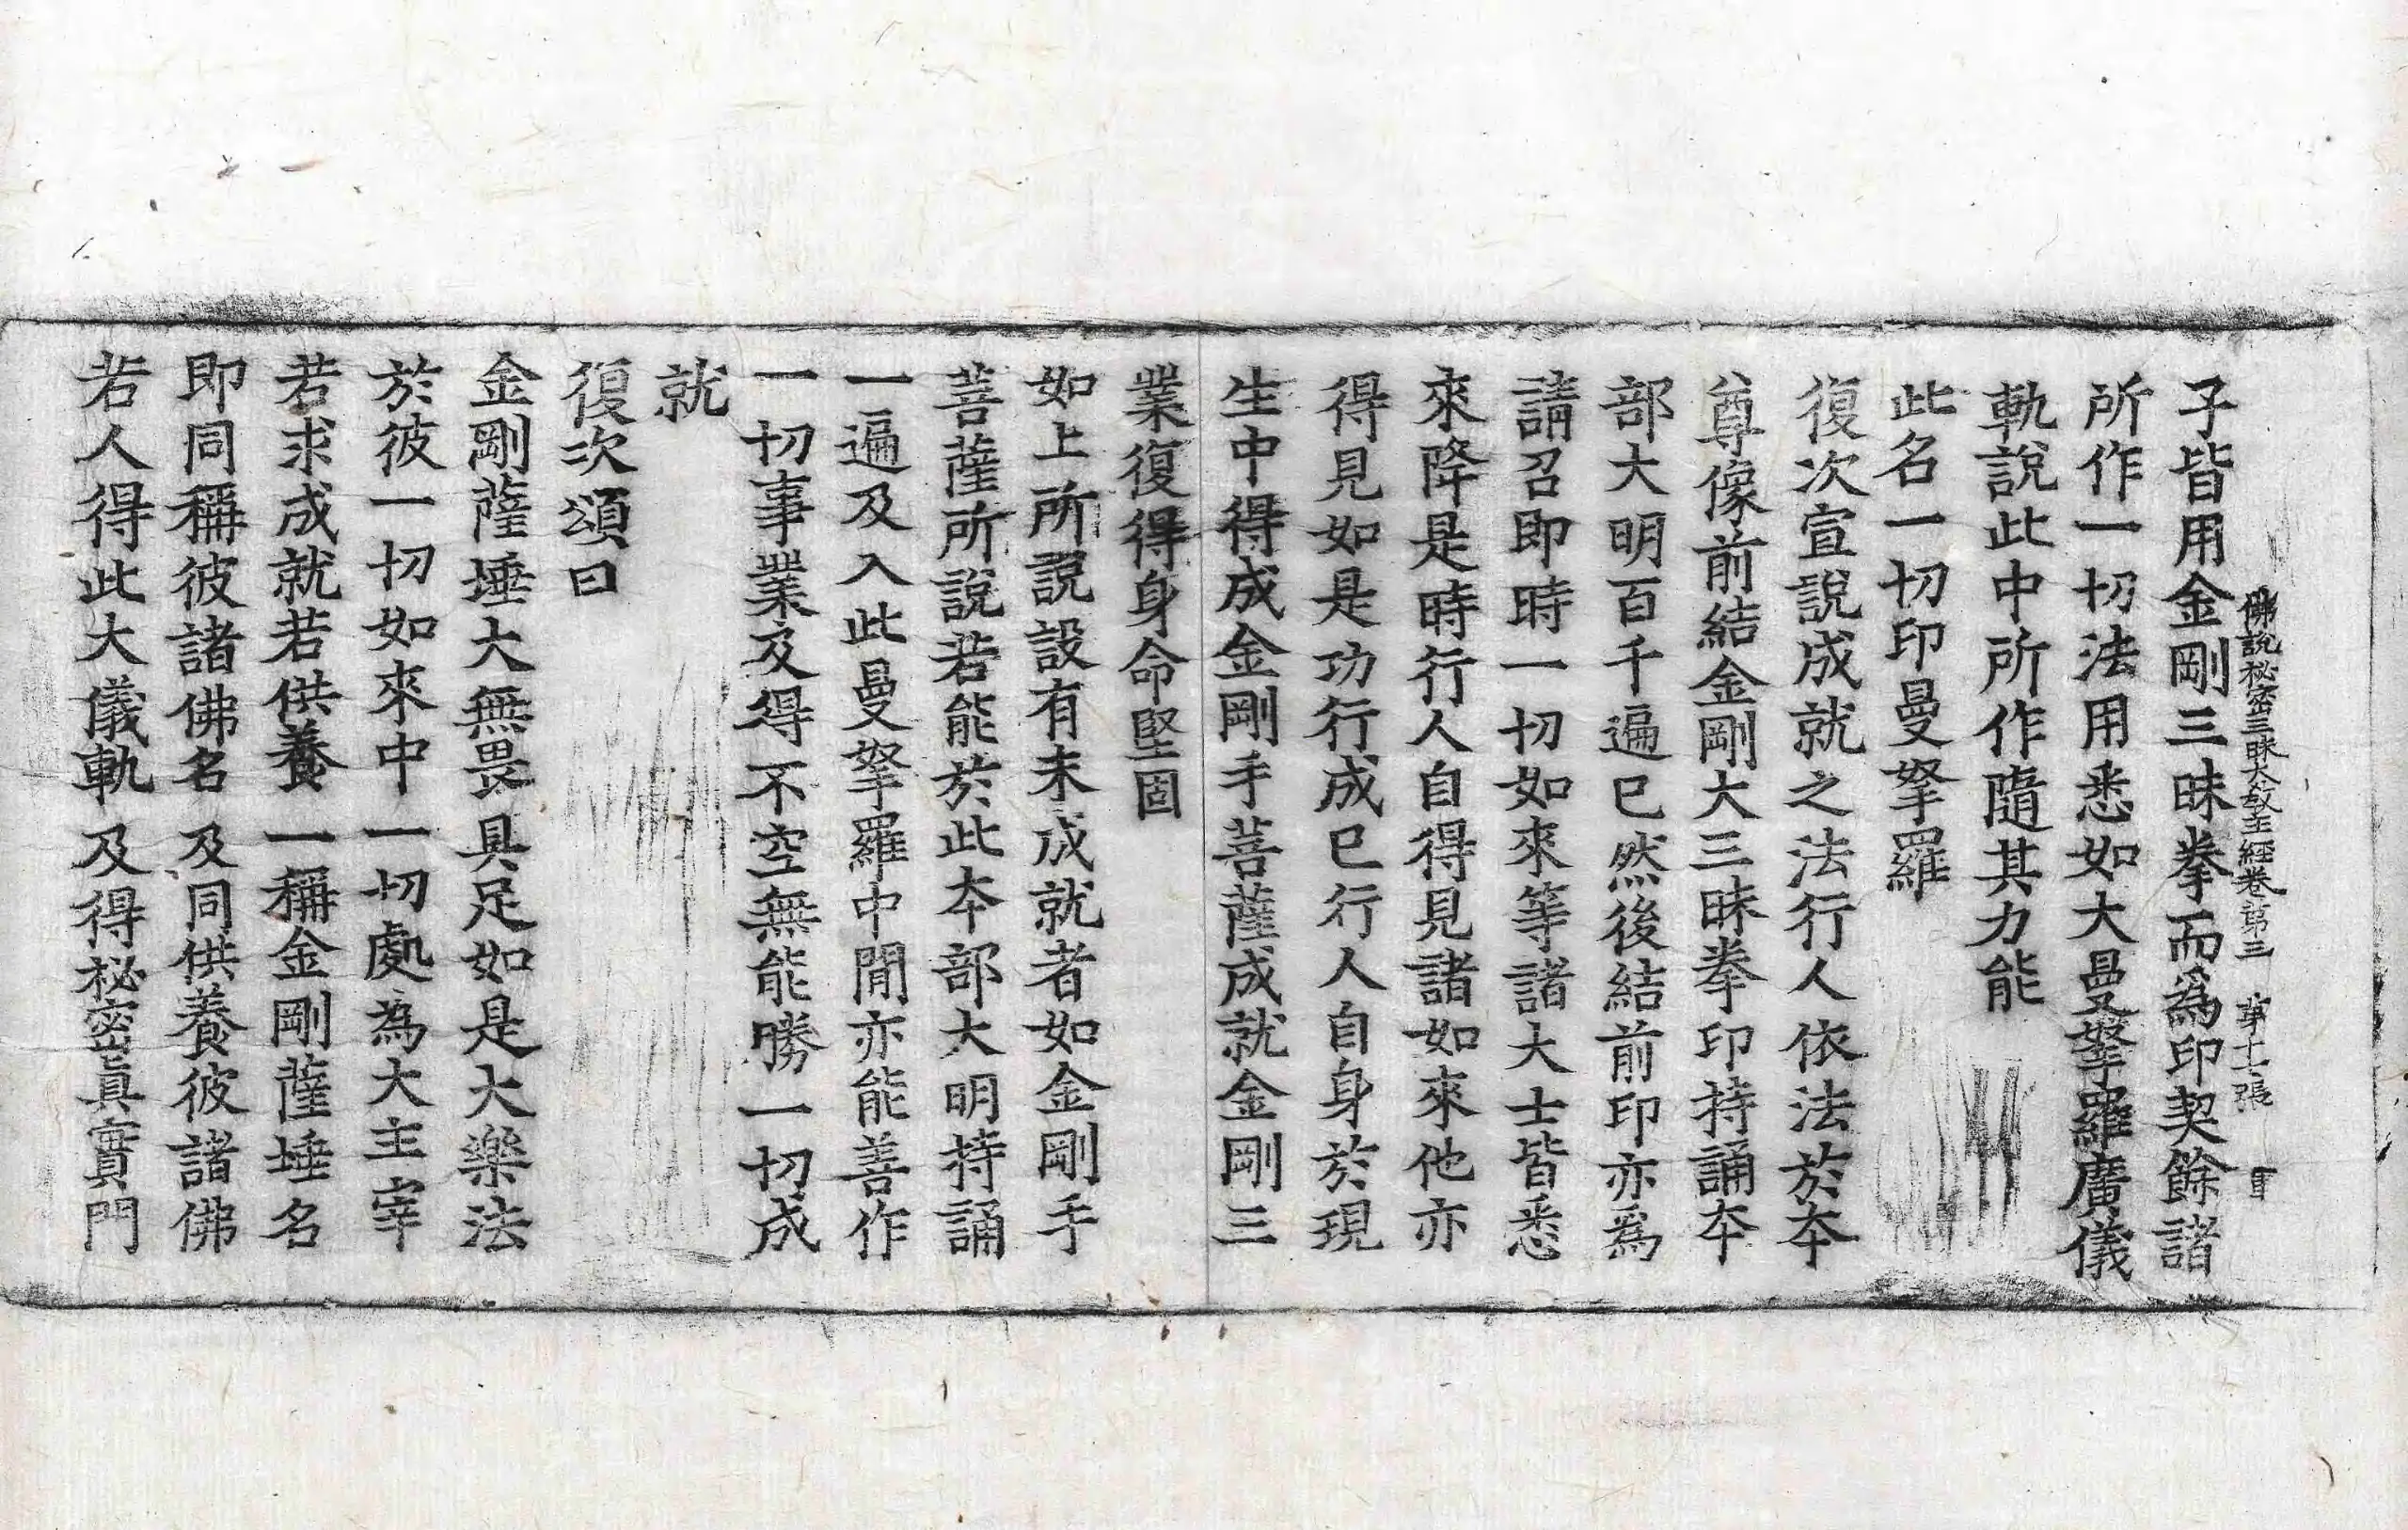 佛說秘密三昧大敎王經卷第三　第十七張
子皆用金剛三昧拳而爲印契餘諸
所作一切法用悉如大曼拏羅廣儀
軌說此中所作隨其力能
此名一切印曼拏羅
復次宣說成就之法行人依法於本
尊像前結金剛大三昧拳印持誦本
部大明百千遍已然後結前印亦爲
請召即時一切如來等諸大士皆悉
來降是時行人自得見諸如來他亦
得見如是功行成已行人自身於現
生中得成金剛手菩薩成就金剛三
業復得身命堅固
如上所說設有未成就者如金剛手
菩薩所說若能於此本部大明持誦
一遍及入此曼拏羅中閒亦能善作
一切事業及得不空無能勝一切成
就
復次頌曰
金剛薩埵大無畏　具足如是大樂法
於彼一切如來中　一切處爲大主宰
若求成就若供養　一稱金剛薩埵名
即同稱彼諸佛名　及同供養彼諸佛
若人得此大儀軌　及得秘密眞實門